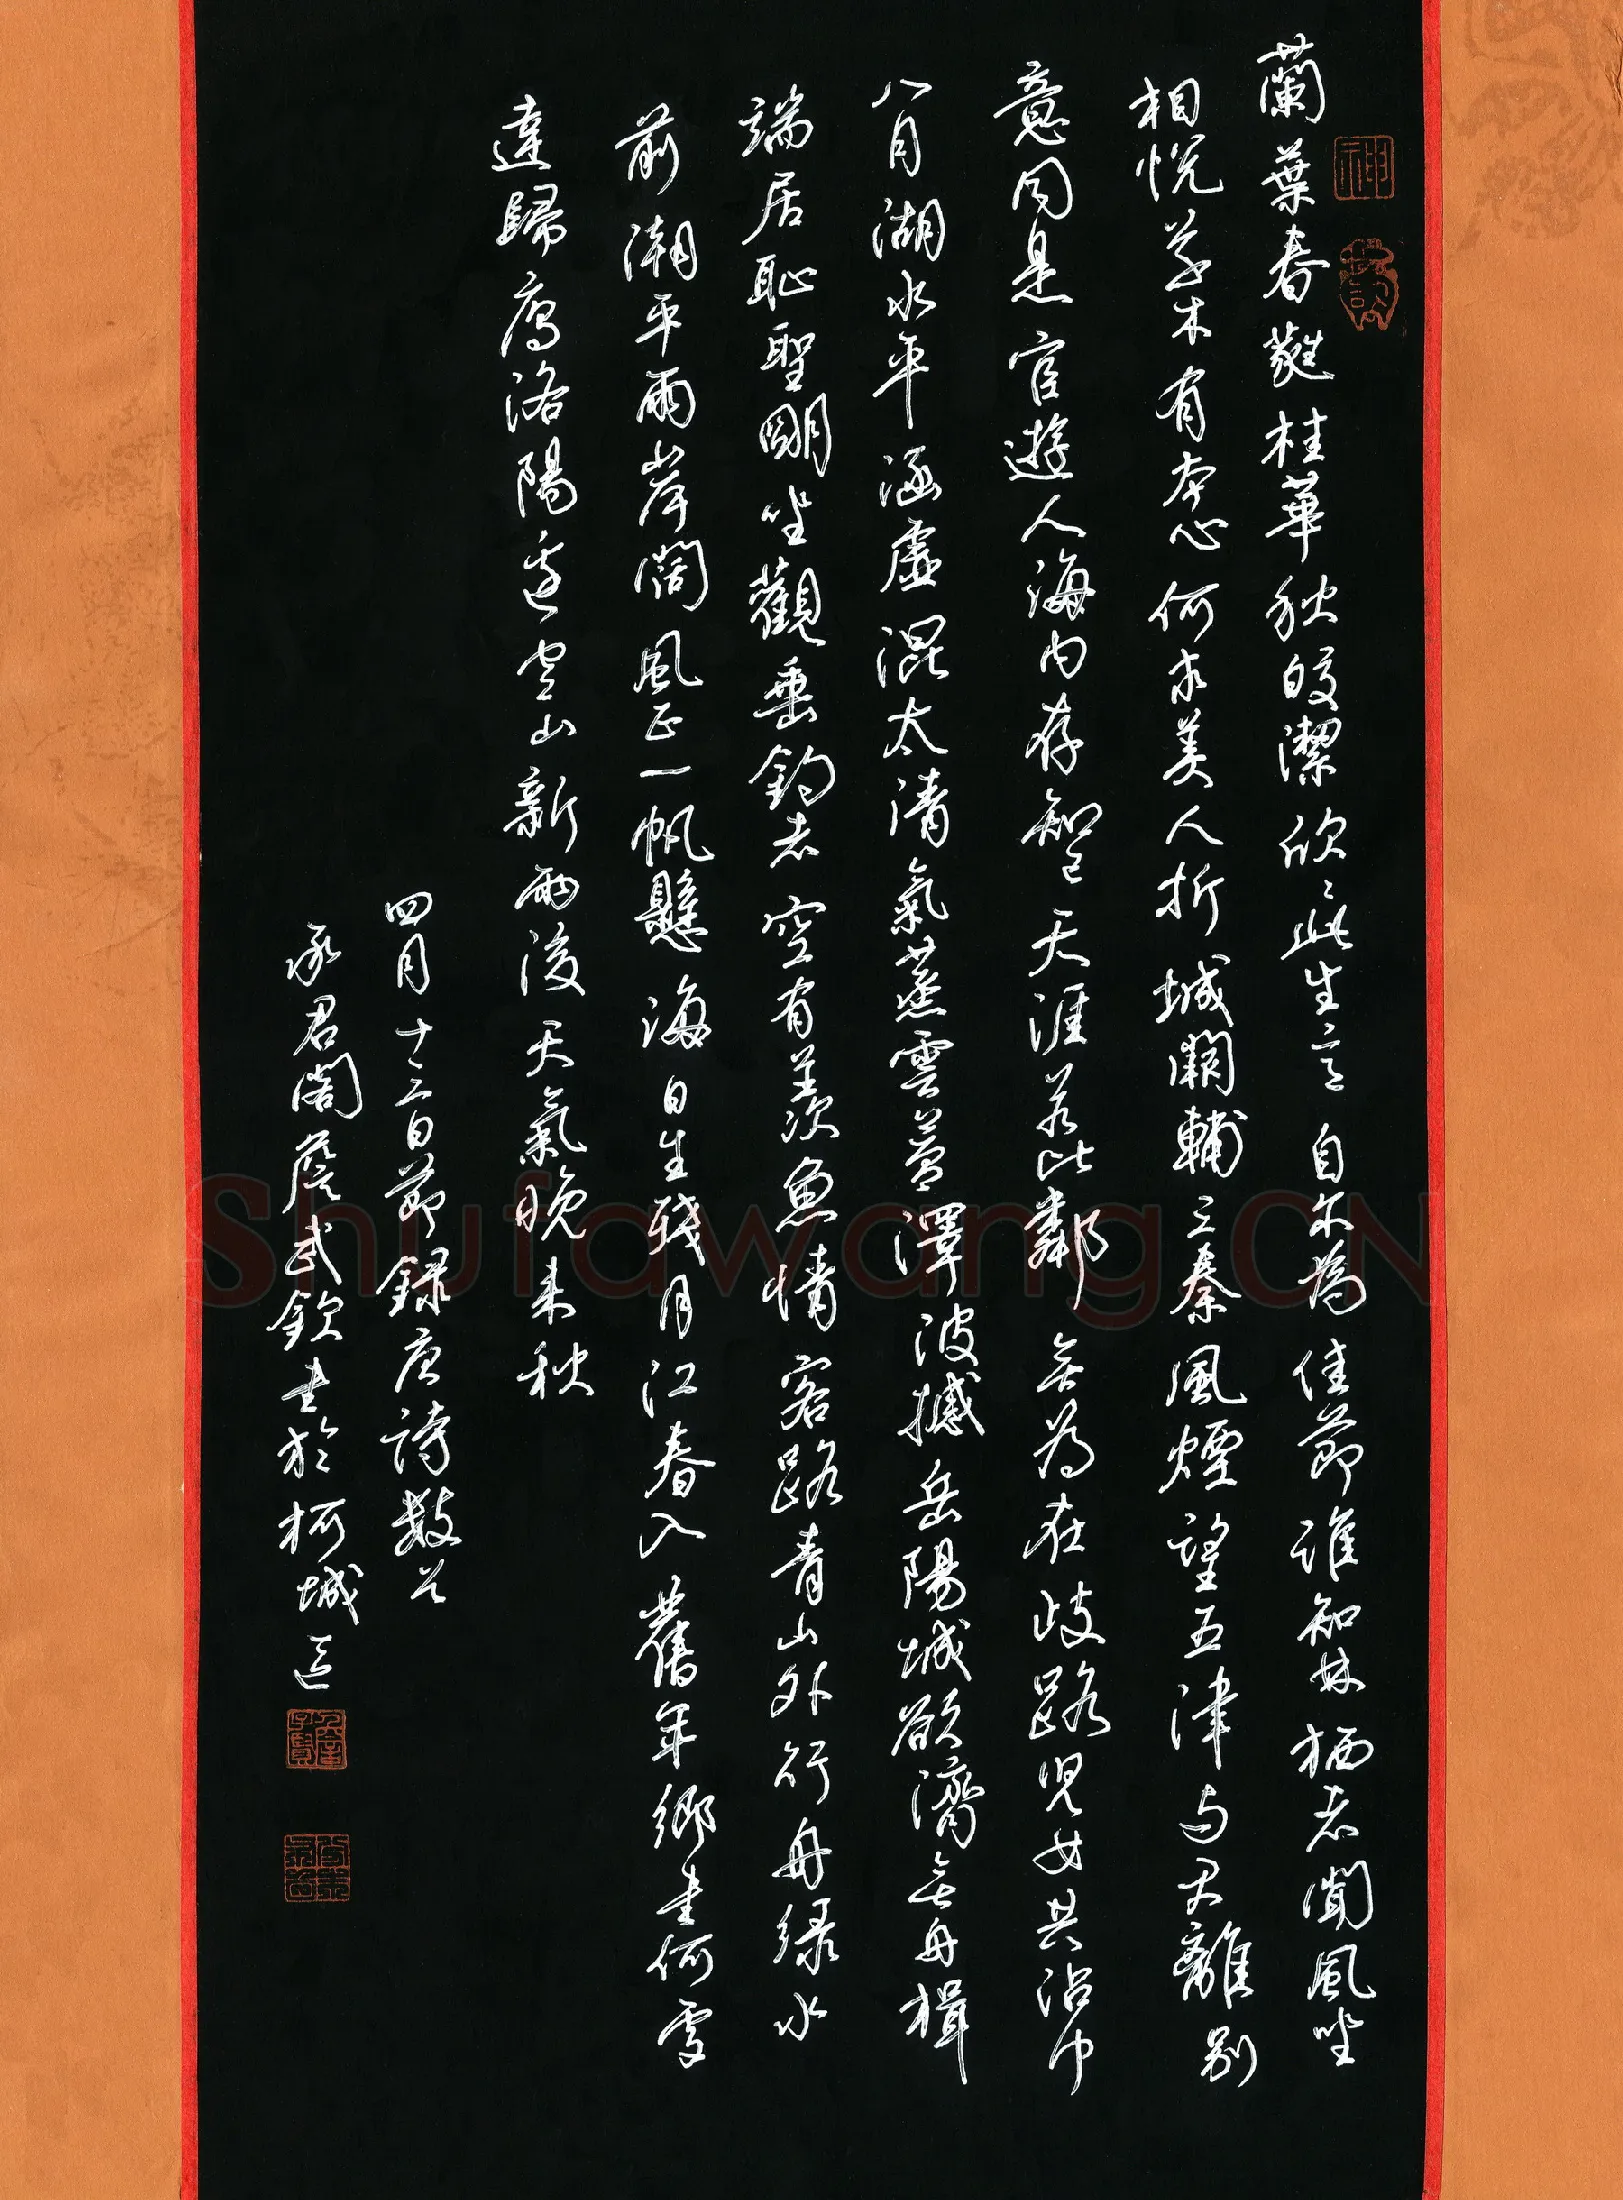 蘭葉春蕤桂華秋皎潔欣欣此生意自尔為佳節誰知林栖者聞風坐
相悅草木有本心何求美人折城闕輔三秦風煙望五津与君離别
意同是宦遊人海内存知己天涯若比鄰無為在歧路児女共沾巾
八月湖水平涵虛混太清氣蒸雲夢澤波撼岳陽城欲濟無舟楫
端居恥聖明坐觀垂釣者空有羨魚情客路青山外行舟緑水
前潮平兩岸闊風正一帆懸海日生残月江春入舊年鄉書何處
達歸雁洛陽邊空山新雨後天氣晚来秋
四月十三日節録唐詩数首
承君閣詹武欽書於柯城
Shufawang.CN